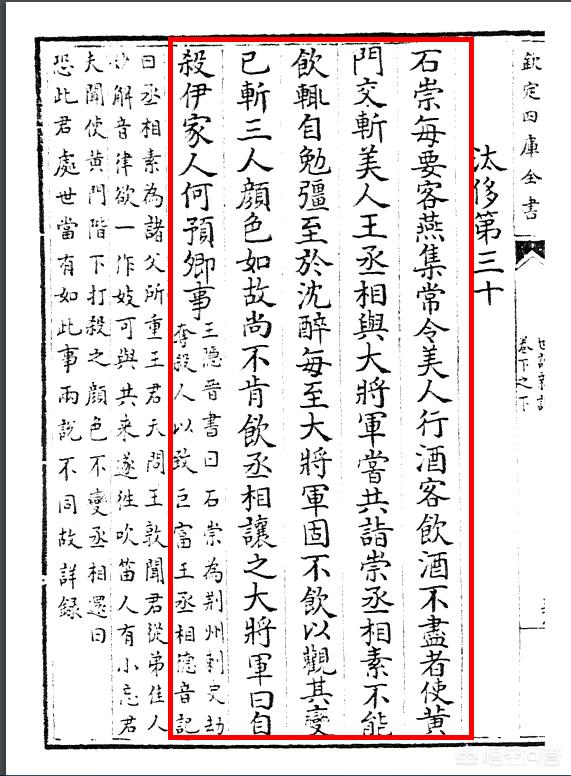 欽定四庫全書
世說新語
卷下之下
汰侈第三十
石崇每要客燕集常令美人行酒客飲酒不盡者使黄
門交斬美人王丞相與大將軍嘗共詣崇丞相素不能
飲輒自勉彊至於沈醉每至大將軍固不飲以觀其變
已斬三人顔色如故尚不肯飲丞相讓之大將軍曰自
殺伊家人何預卿事
王隱晉書曰石崇為荆州刺史劫
奪殺人以致巨富王丞相德音記
曰丞相素為諸父所重王君夫問王敦聞君從弟佳人
解音律欲一作妓可與共来遂往吹笛人有小忘君
夫聞使黄門階下打殺之顔色不變丞相還曰
恐此君處世當有如此事兩說不同故詳録
悟空问答